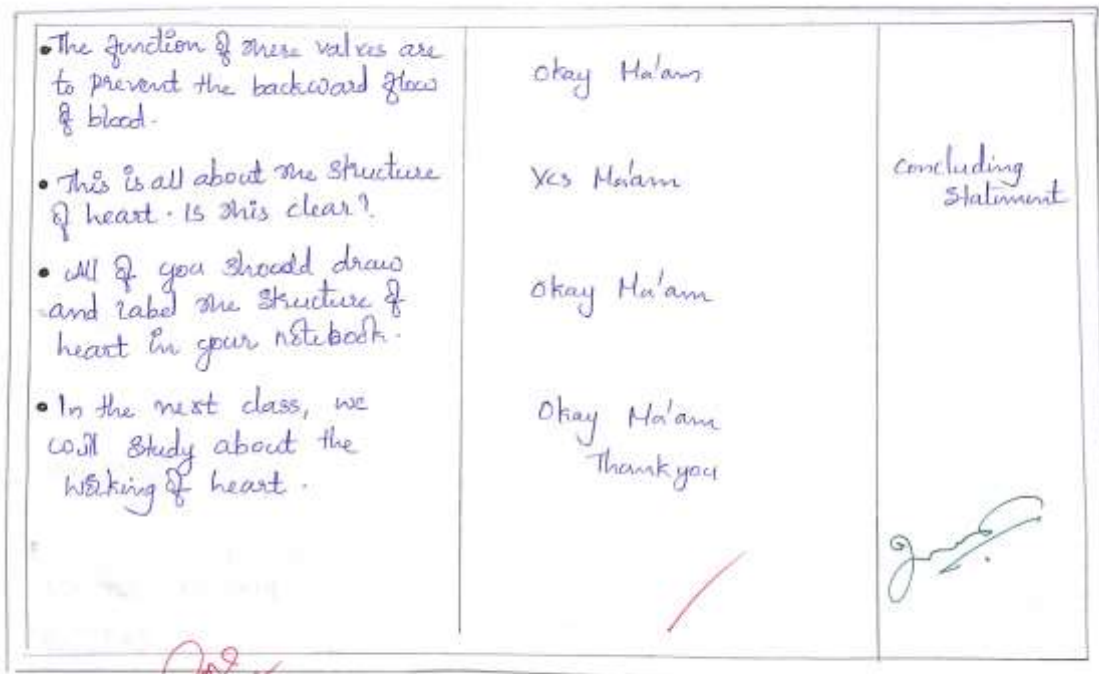 • The function of these valves are
to prevent the backward flow
of blood.
Okay Ma'am
• This is all about the structure
of heart. Is this clear?
Yes Ma'am
Concluding
Statement
• All of you should draw
and label the structure of
heart in your notebook.
Okay Ma'am
• In the next class, we
will study about the
working of heart.
Okay Ma'am
Thank you